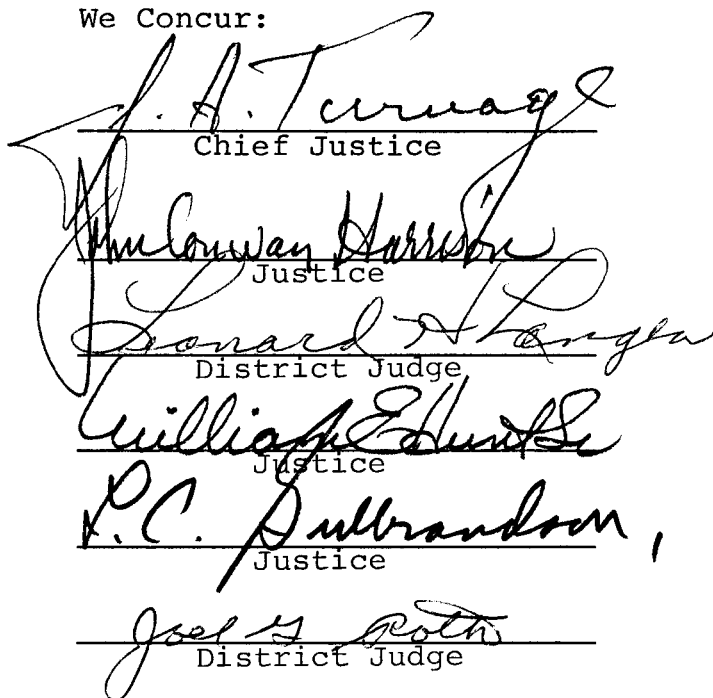 We Concur:
J. A. Turnage
Chief Justice
John Conway Harrison
Justice
Leonard H Langen
District Judge
William E Hunt Sr
Justice
L. C. Gulbrandson,
Justice
Joel G Roth
District Judge